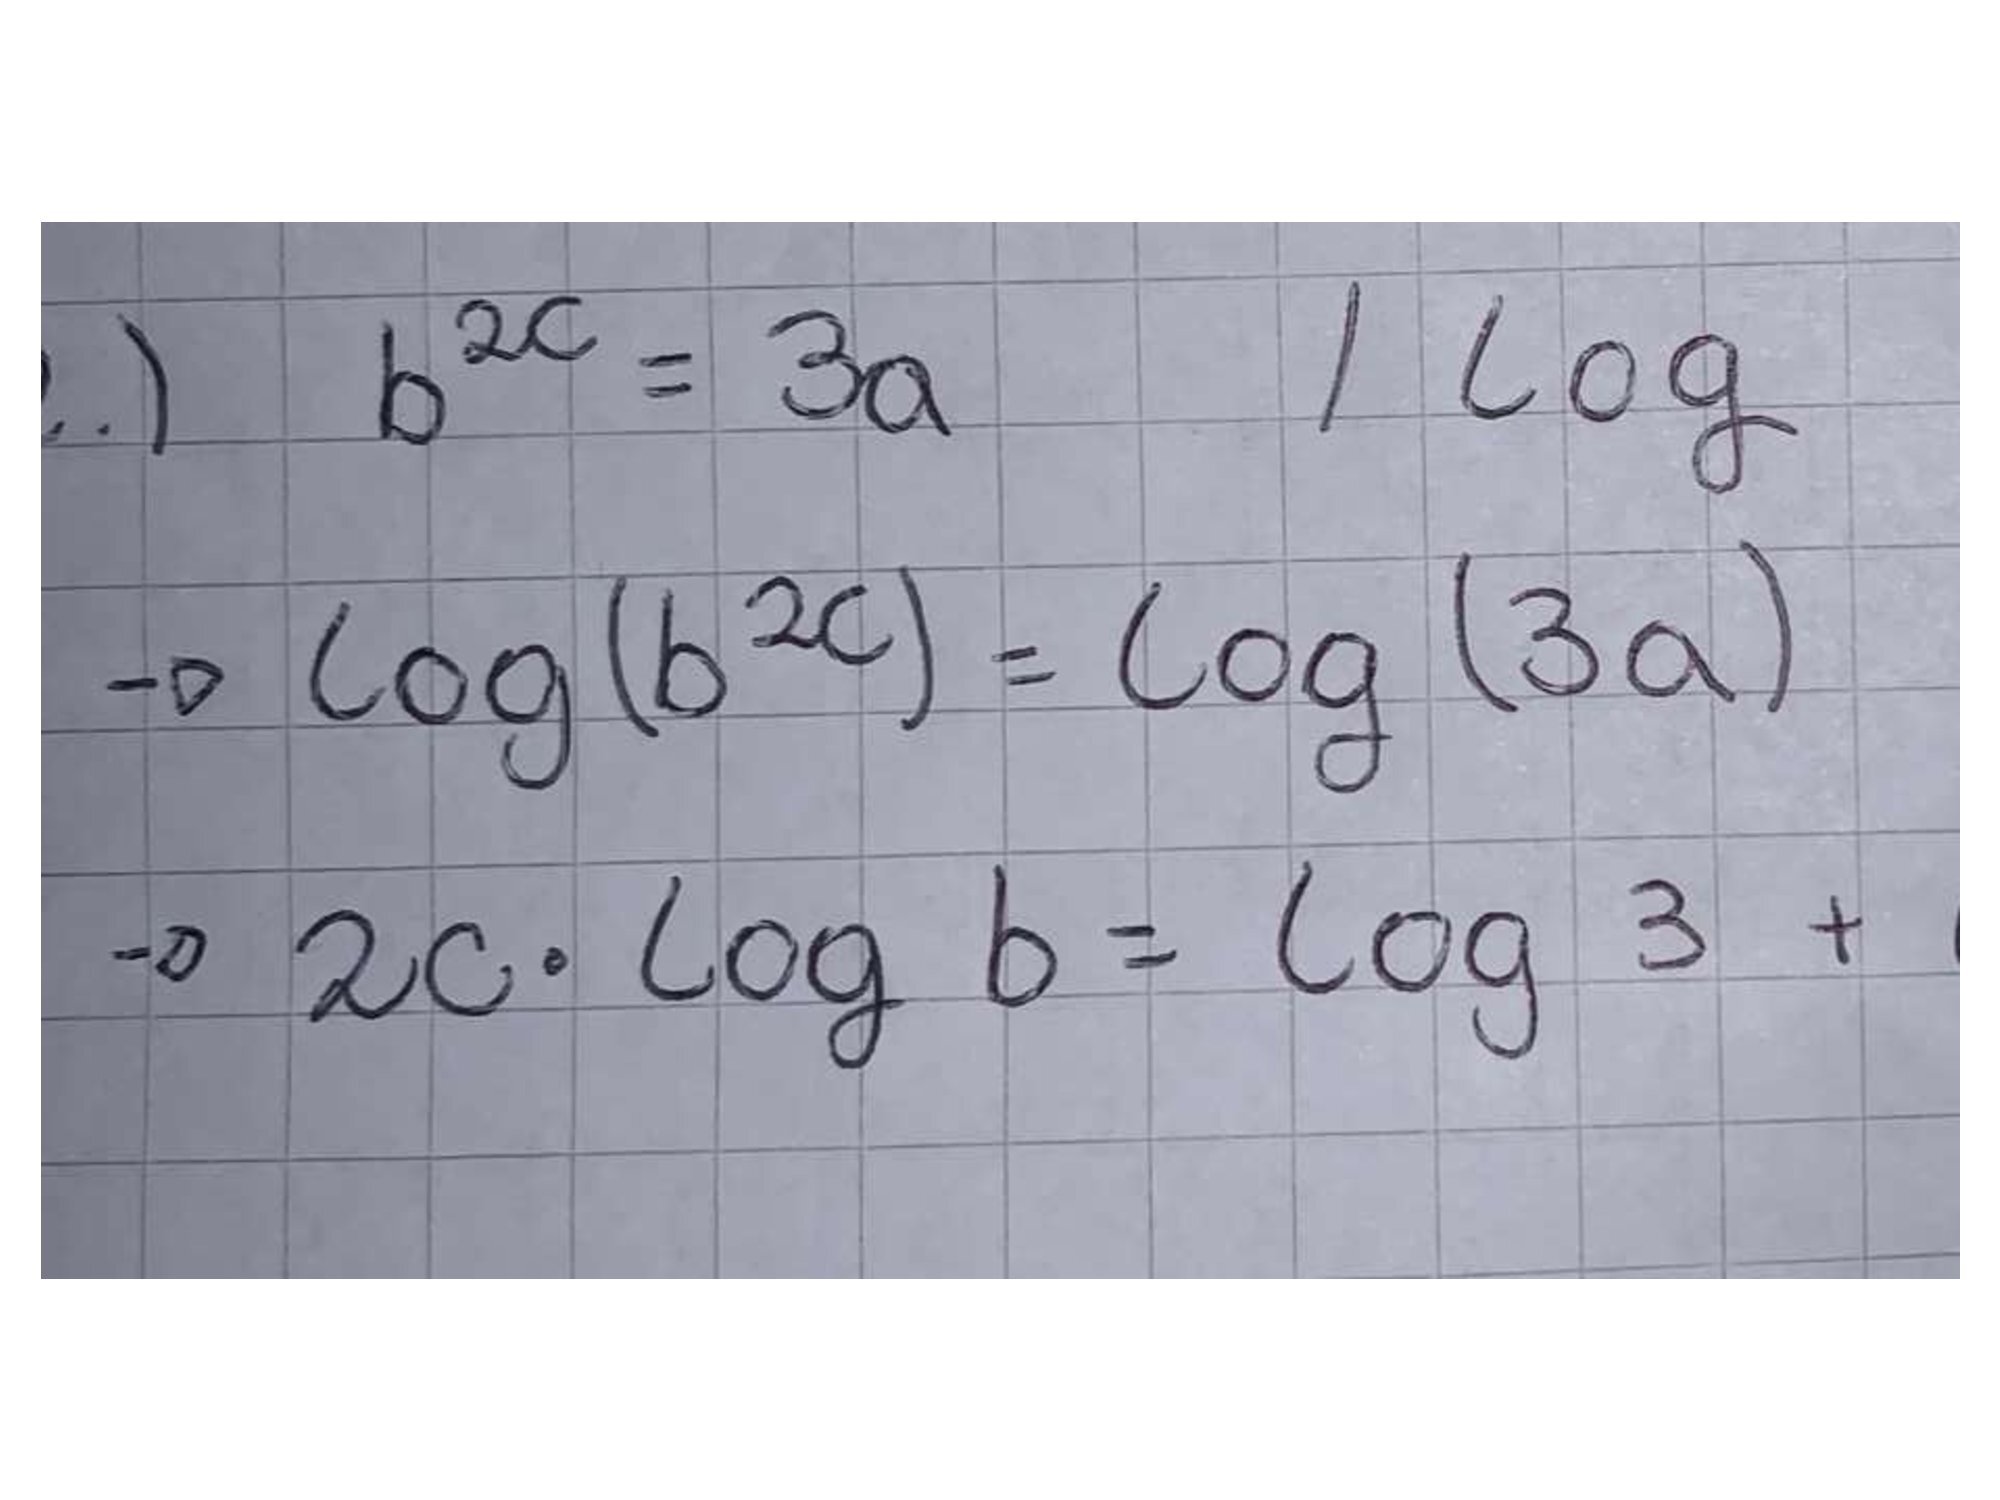 .) b^2c = 3a / log
→ log(b^2c) = log (3a)
→ 2c · log b = log 3 +